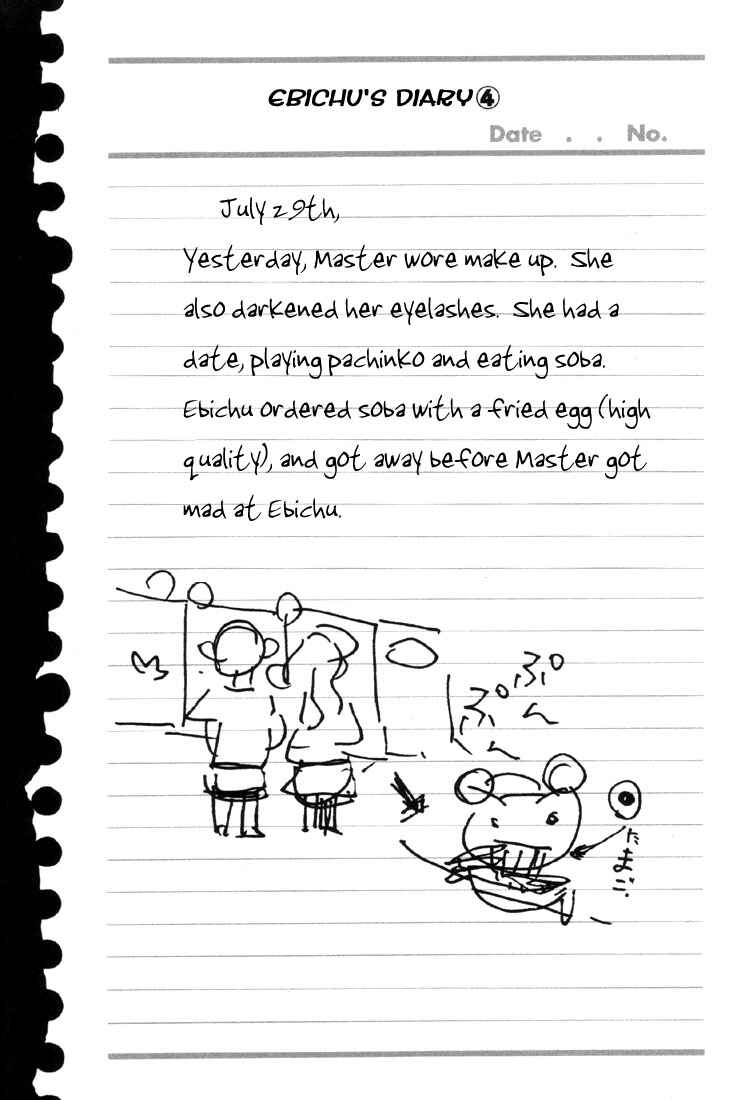 EBICHU'S DIARY④
Date . . No.
July 29th,
Yesterday, Master wore make up. She
also darkened her eyelashes. She had a
date, playing pachinko and eating soba.
Ebichu ordered soba with a fried egg (high
quality), and got away before Master got
mad at Ebichu.
たまご